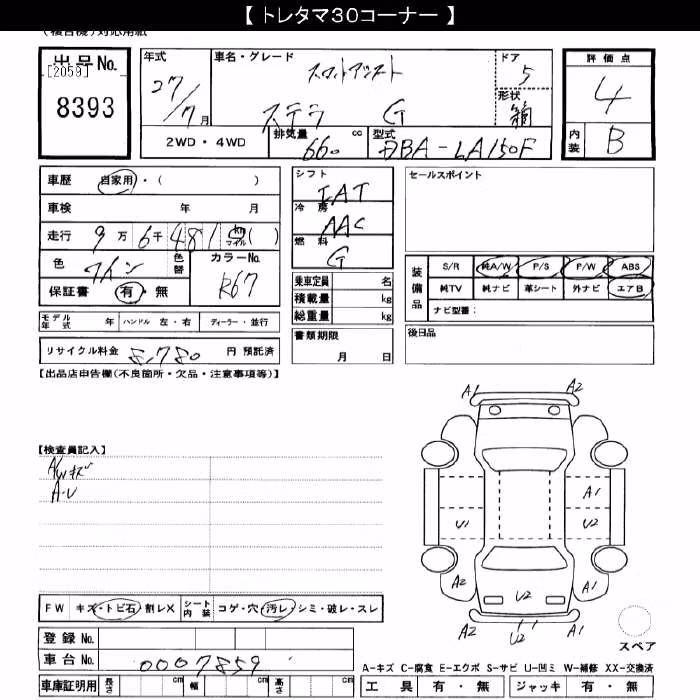 【 トレタマ30コーナー 】
(複合機)対応用紙
出品No.
[2059]
8393
年式
27/7月
車名・グレード
スマートアシスト
ステラ G
ドア
5
形状
箱
評価点
4
内装
B
2WD・4WD
排気量 660 cc
型式 DBA-LA150F
車歴 自家用・( )
車検 年 月
走行 9万6千481 km マイル ( )
色 ワイン 色替
カラーNo. R67
保証書 有・無
シフト
IAT
冷房
AAC
燃料
G
セールスポイント
装備品
S/R 純A/W P/S P/W ABS
純TV 純ナビ 革シート 外ナビ エアB
ナビ型番:
乗車定員 名
積載量 kg
総重量 kg
モデル年式 年 ハンドル 左・右 ディーラー・並行
書類期限
月 日
後日品
リサイクル料金 8,780 円 預託済
【出品店申告欄(不良箇所・欠品・注意事項等)】
A1 A2
【検査員記入】
A/Wキズ
A・U
A1
U1 U2
A2 U2 A1
A2 U2 A2
FW キズ・トビ石・割レX シート内装 コゲ・穴・汚レ・シミ・破レ・スレ
登録No.
車台No. 0007859
スペア
A-キズ C-腐食 E-エクボ S-サビ U-凹ミ W-補修 XX-交換済
車庫証明用 長さ cm 幅 cm 高さ cm
工具 有・無 ジャッキ 有・無